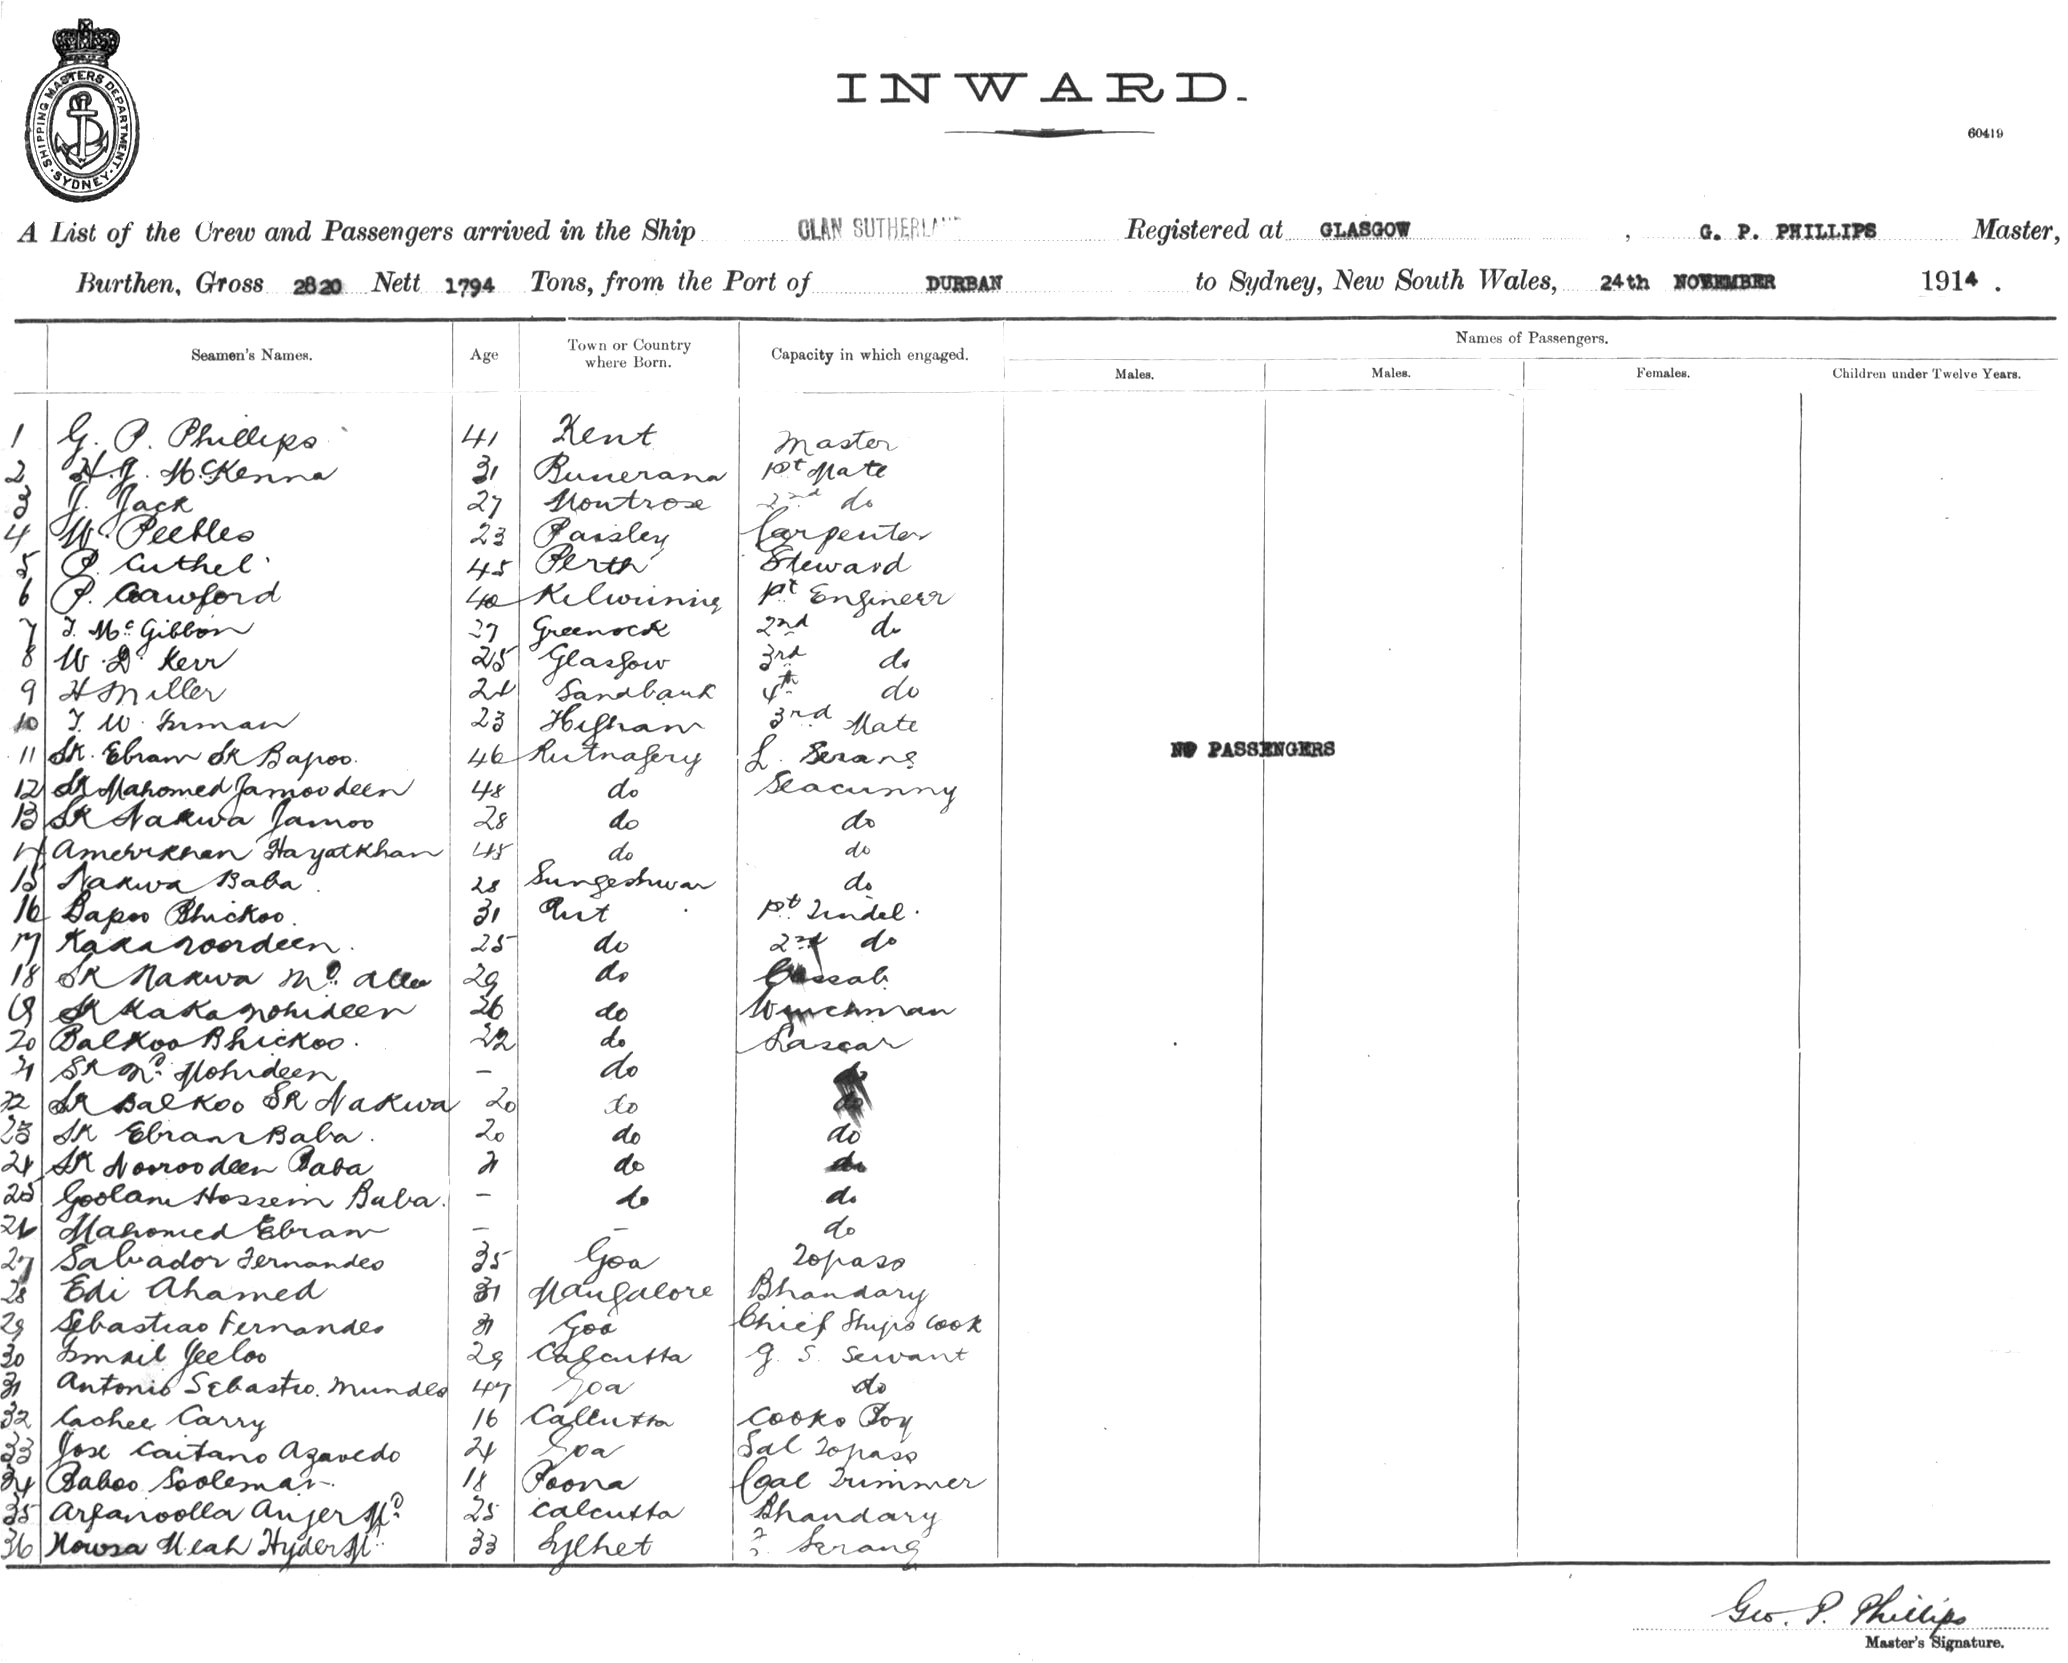 SHIPPING MASTERS DEPARTMENT. SYDNEY.
INWARD.
60419
A List of the Crew and Passengers arrived in the Ship CLAN SUTHERLAND Registered at GLASGOW, G. P. PHILLIPS Master,
Burthen, Gross 2820 Nett 1794 Tons, from the Port of DURBAN to Sydney, New South Wales, 24th NOVEMBER 1914.
Seamen's Names. Age Town or Country where Born. Capacity in which engaged. Names of Passengers.
Males. Males. Females. Children under Twelve Years.
1 G. P. Phillips 41 Kent Master
2 H. J. McKenna 31 Buncrana 1st Mate
3 J. Jack 27 Montrose 2nd do
4 W. Peebles 23 Paisley Carpenter
5 P. Cuthel 45 Perth Steward
6 P. Crawford 40 Kilwinning 1st Engineer
7 J. McGibbon 27 Greenock 2nd do
8 W. D. Kerr 25 Glasgow 3rd do
9 H Miller 24 Sandbank 4th do
10 T. W. Inman 23 Higham 3rd Mate
11 Sk. Ebram Sk Bapoo. 46 Rutnagery L. Serang
NO PASSENGERS
12 Sk Mahomed Jamoodeen 48 do Seacunny
13 Sk Nakwa Jamoo 28 do do
14 Amerkhan Hayatkhan 45 do do
15 Nakwa Baba 28 Sungeshwar do
16 Bapoo Bhickoo. 31 Rut 1st Tindel.
17 Kaka Noordeen. 25 do 2nd do
18 Sk Nakwa Md. Allee 29 do Cassab
19 Sk Kaka Mohideen 26 do Winchman
20 Balkoo Bhickoo. 22 do Lascar
21 Sk Md. Mohideen - do do
22 Sk Balkoo Sk Nakwa 20 do do
23 Sk Ebram Baba. 20 do do
24 Sk Nooroodeen Baba 21 do do
25 Goolam Hossein Baba. - do do
26 Mahomed Ebram - - do
27 Salvador Fernandes 35 Goa Topass
28 Edi Ahamed 31 Mangalore Bhandary
29 Sebastiao Fernandes 31 Goa Chief Ships Cook
30 Ismail Jeeloo 29 Calcutta G. S. Servant
31 Antonio Sebastio. Mundes 47 Goa do
32 Cachee Carry 16 Calcutta Cooks Boy
33 Jose Caitano Azavedo 24 Goa Sal Topass
34 Baboo Sooleman 18 Poona Coal Trimmer
35 Arfanoolla Anjer Md. 25 Calcutta Bhandary
36 Nowsa Meah Hyder Md. 33 Sylhet F. Serang
Geo. P. Phillips
Master's Signature.